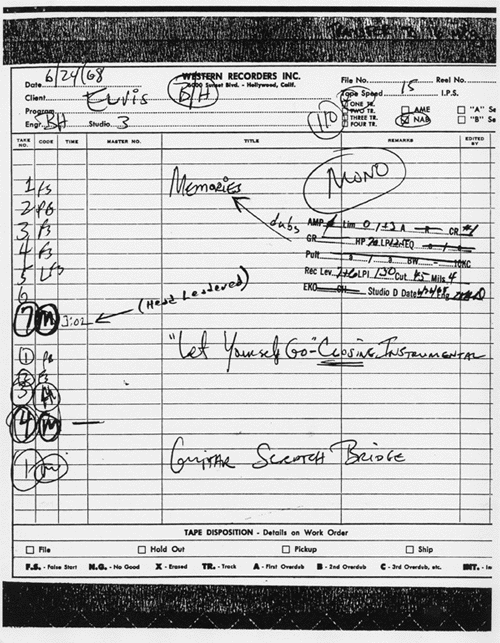 TRANSFER
WESTERN RECORDERS INC.
6000 Sunset Blvd. - Hollywood, Calif.
Date 6/24/68
File No. Reel No.
Client ELVIS B/H
Tape Speed 15 I.P.S.
Program
ONE TR.
TWO TR.
THREE TR.
FOUR TR.
AME
NAB
"A" Se
"B" Se
Engr. BH Studio 3
TAKE NO. CODE TIME MASTER NO. TITLE REMARKS EDITED BY
1 FS MEMORIES MONO
2 FS
3 FS
4 FS
5 LFS
6
7 M 3:02
(Head Leadered)
dubs
AMP Lim 0 A R CR #1
GR HP LP EQ
Pult BW 10KC
Rec Lev. LPI 130 Cut 45 Mils 4
EKO CH Studio D Date 6/24/68 Eng
"Let Yourself Go" - CLOSING INSTRUMENTAL
1
2 FS
3
4 M —
1 M GUITAR SCRATCH BRIDGE
TAPE DISPOSITION - Details on Work Order
File Hold Out Pickup Ship
F.S. - False Start N.G. - No Good X - Erased TR. - Track A - First Overdub B - 2nd Overdub C - 3rd Overdub, etc. INT. - In